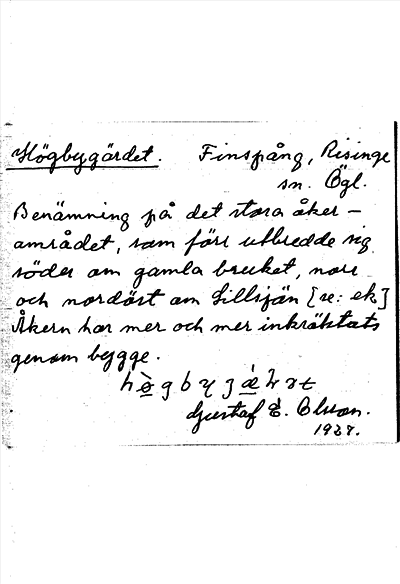 Högbygärdet. Finspång, Risinge
sn. Ögl.
Benämning på det stora åker-
området, som förr utbredde sig
söder om gamla bruket, norr
och nordöst om Lillsjön [se: ek]
Åkern har mer och mer inkräktats
genom bygge.
Gustaf E. Olsson.
1937.